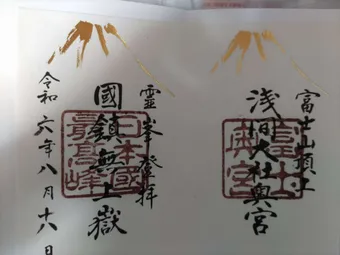 富士山頂上
浅間大社奥宮
富士山
奥宮
霊峯登拝
國鎮無上嶽
日本國
最高峰
令和六年八月十六日